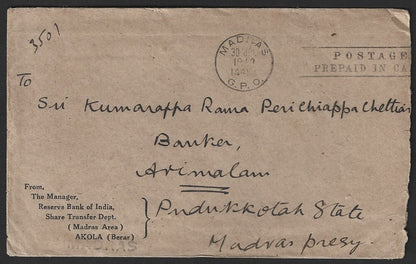 3501
MADRAS
G.P.O.
POSTAGE
PREPAID IN CA
To
Sri Kumarappa Rama Perichiappa Chettiar
Banker,
Arimalam
Pudukkotah State
Madras presy.
From,
The Manager,
Reserve Bank of India,
Share Transfer Dept.
(Madras Area)
AKOLA (Berar)
MADRAS